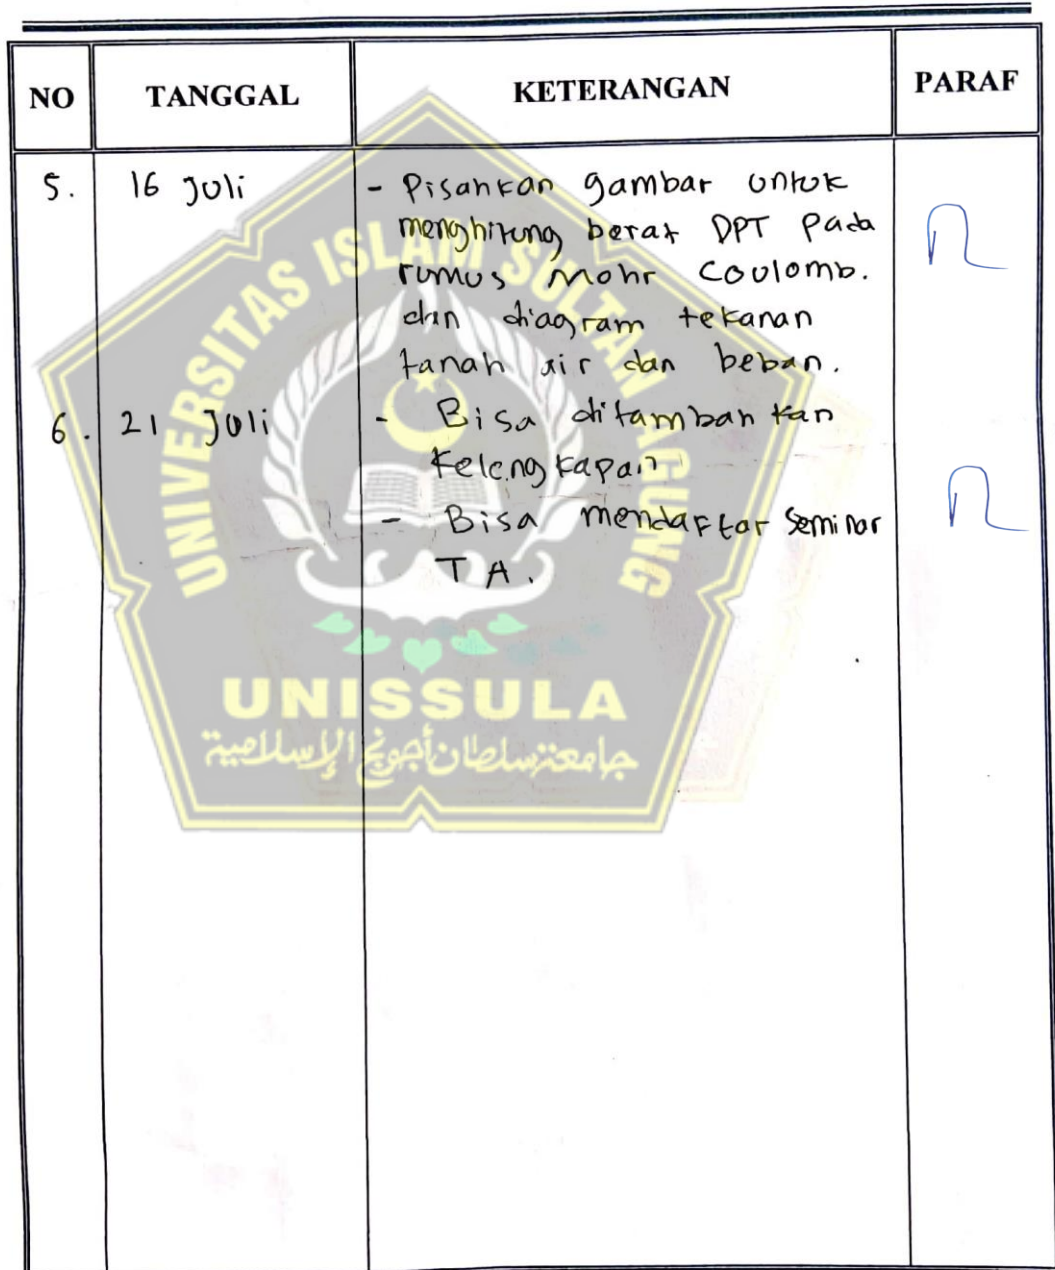 NO TANGGAL KETERANGAN PARAF
5. 16 Juli - Pisahkan gambar untuk
menghitung berat DPT pada
rumus Mohr Coulomb.
dan diagram tekanan
tanah air dan beban.
6. 21 Juli - Bisa ditambahkan
kelengkapan
- Bisa mendaftar seminar
TA.
UNIVERSITAS ISLAM SULTAN AGUNG
UNISSULA
جامعة سلطان أجونج الإسلامية